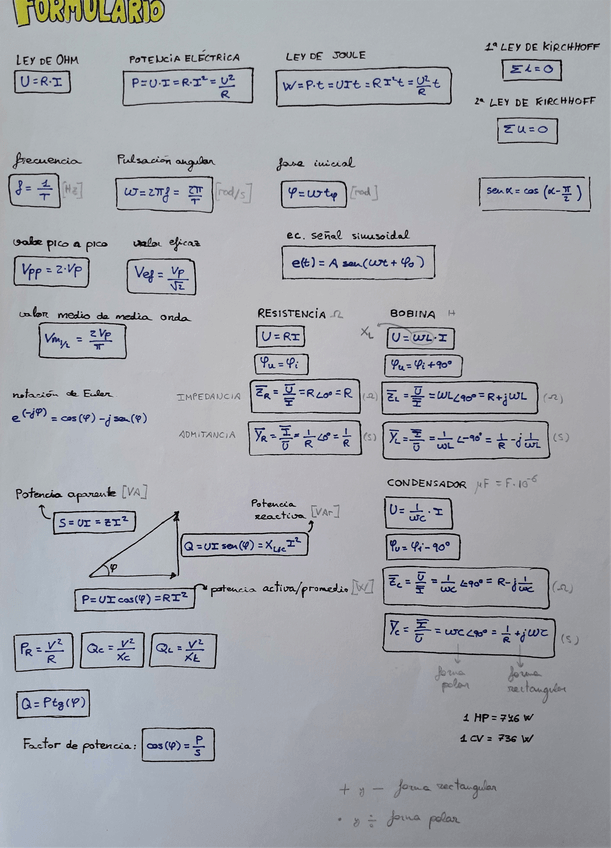 FORMULARIO
LEY DE OHM
U = R·I
POTENCIA ELÉCTRICA
P = U·I = R·I² = U²/R
LEY DE JOULE
W = P·t = UIt = RI²t = U²/R t
1ª LEY DE KIRCHHOFF
Σi = 0
2ª LEY DE KIRCHHOFF
Σu = 0
frecuencia
f = 1/T [Hz]
Pulsación angular
ω = 2πf = 2π/T [rad/s]
fase inicial
φ = ωtφ [rad]
sen α = cos (α - π/2)
valor pico a pico
Vpp = 2·Vp
valor eficaz
Vef = Vp/√2
ec. señal sinusoidal
e(t) = A sen(ωt + φ₀)
valor medio de media onda
Vm1/2 = 2Vp/π
notación de Euler
e^(-jφ) = cos(φ) - j sen(φ)
RESISTENCIA Ω
U = RI
φu = φi
IMPEDANCIA
Z̄R = Ū/Ī = R∠0° = R (Ω)
ADMITANCIA
ȲR = Ī/Ū = 1/R ∠0° = 1/R (S)
BOBINA H
XL
U = ωL·I
φu = φi + 90°
Z̄L = Ū/Ī = ωL∠90° = R + jωL (Ω)
ȲL = Ī/Ū = 1/ωL ∠-90° = 1/R - j 1/ωL (S)
CONDENSADOR μF = F·10⁻⁶
U = 1/ωC · I
φu = φi - 90°
Z̄C = Ū/Ī = 1/ωC ∠-90° = R - j 1/ωC (Ω)
ȲC = Ī/Ū = ωC∠90° = 1/R + jωC (S)
forma polar
forma rectangular
Potencia aparente [VA]
S = UI = ZI²
φ
Potencia reactiva [VAr]
Q = UI sen(φ) = XL/C I²
P = UI cos(φ) = RI²
potencia activa/promedio [W]
PR = V²/R
QC = V²/XC
QL = V²/XL
Q = P tg(φ)
Factor de potencia: cos(φ) = P/S
1 HP = 746 W
1 CV = 736 W
+ y - forma rectangular
· y ÷ forma polar